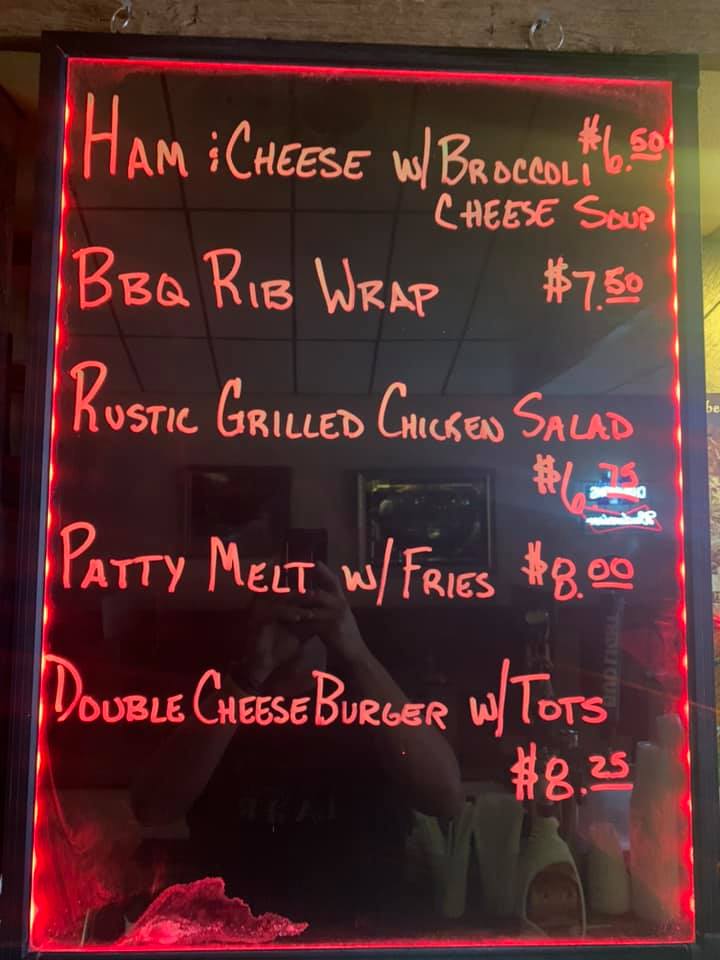 HAM & CHEESE W/ BROCCOLI $6.50
CHEESE SOUP
BBQ RIB WRAP $7.50
RUSTIC GRILLED CHICKEN SALAD
$6.75
PATTY MELT W/ FRIES $8.00
DOUBLE CHEESEBURGER W/ TOTS
$8.25